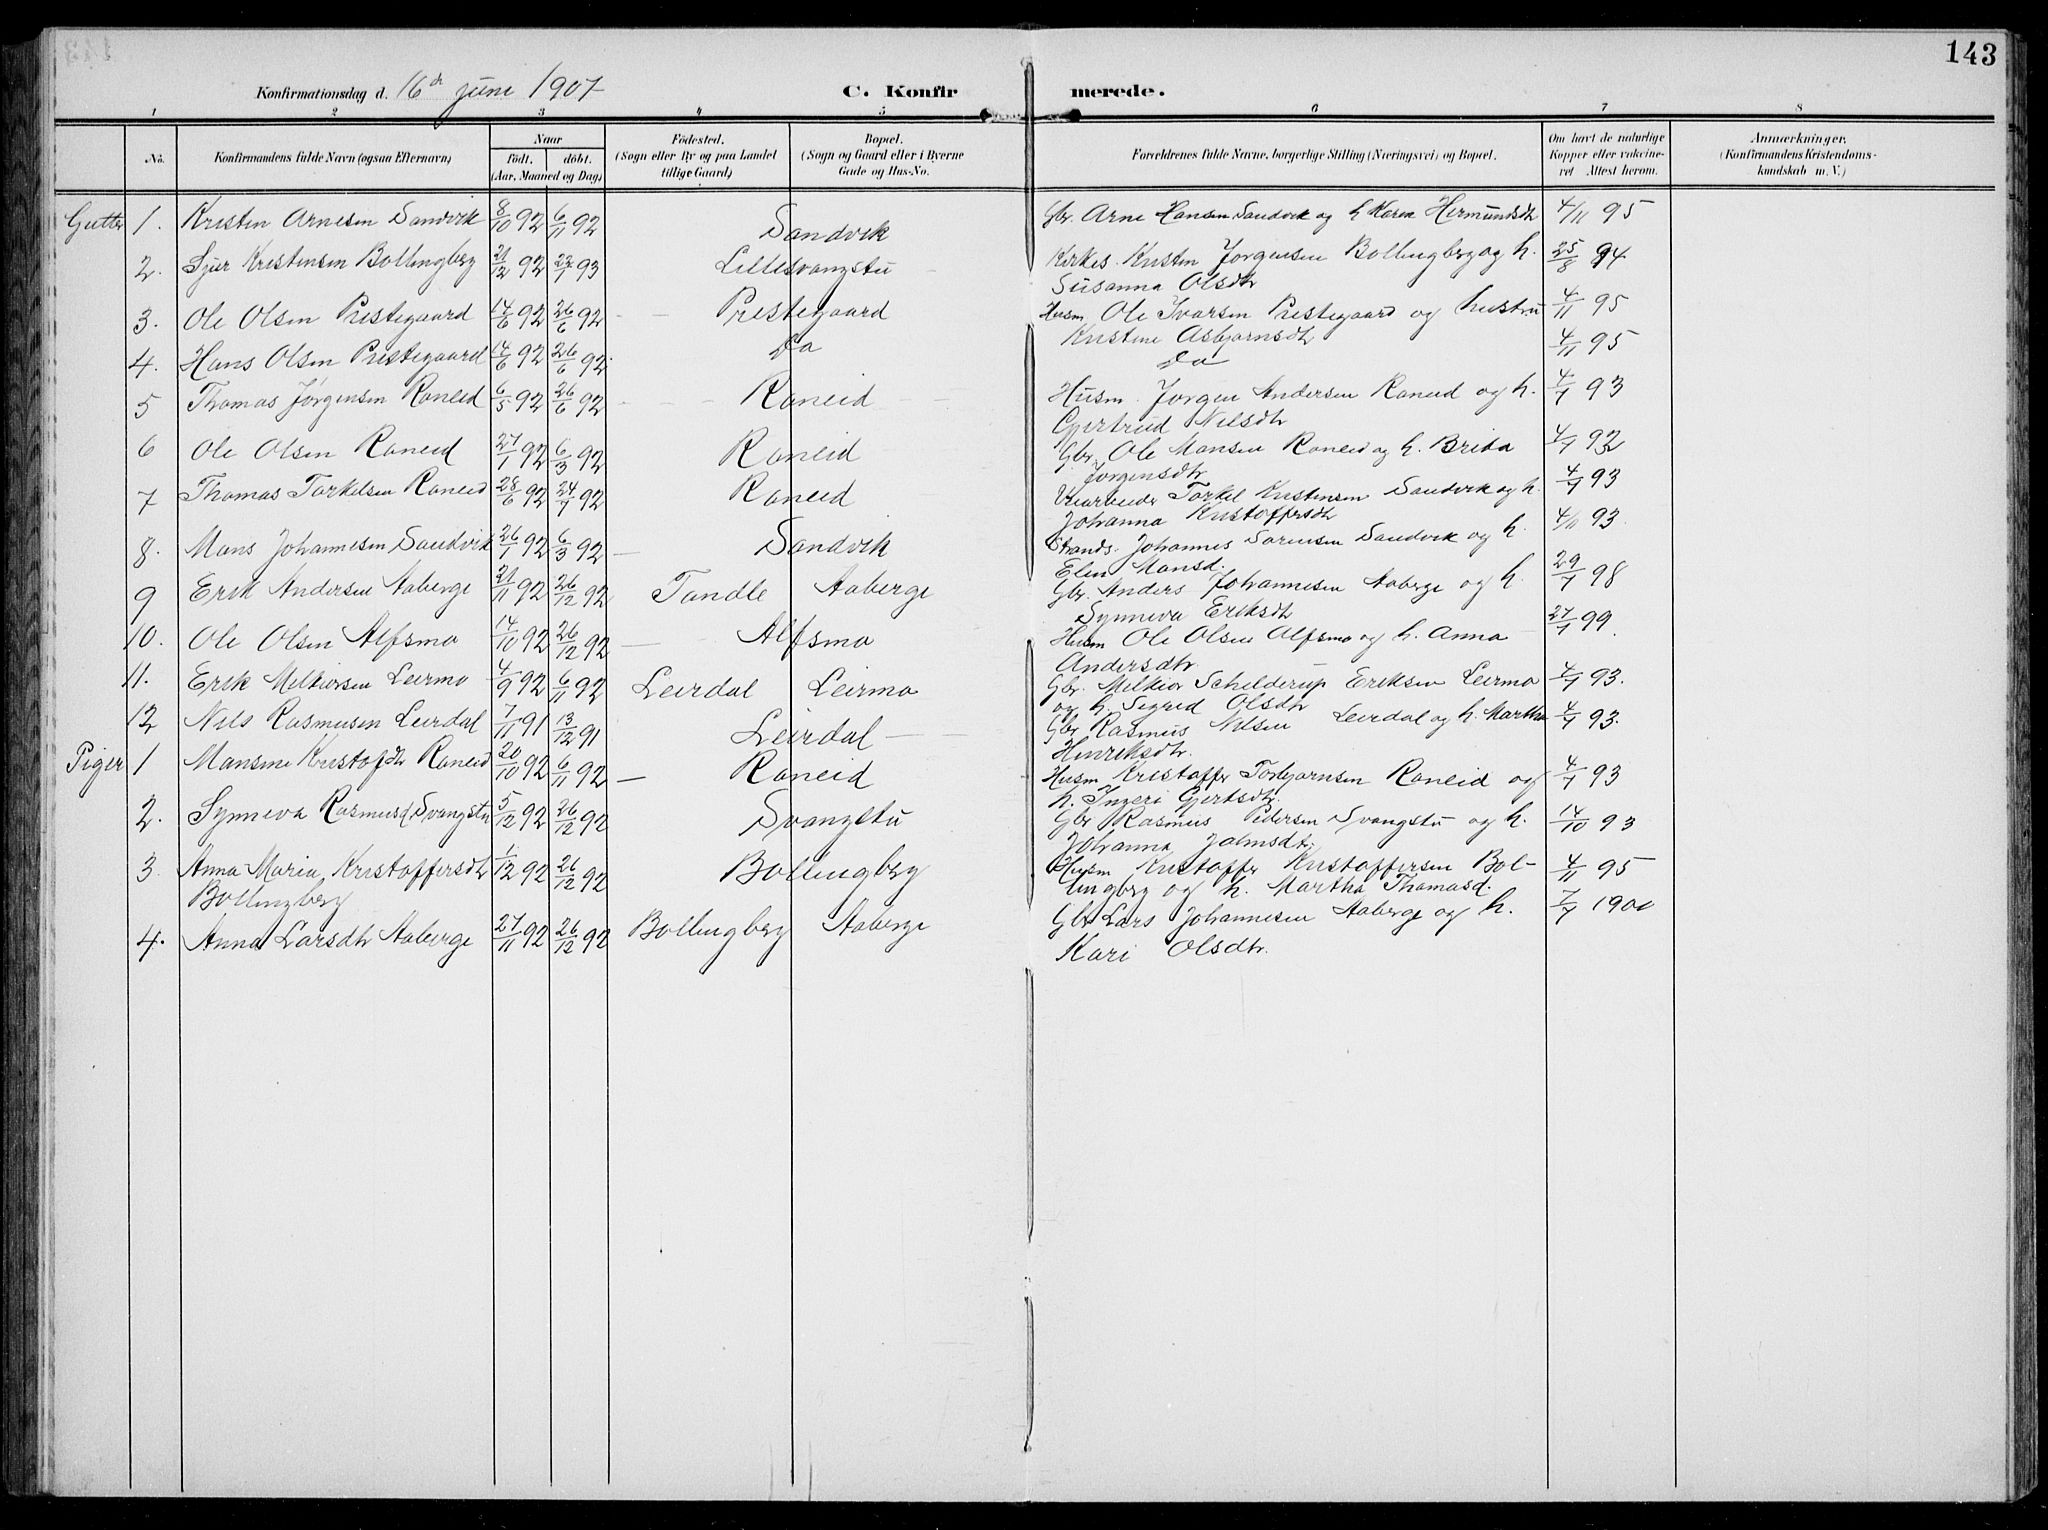 143
Konfirmationsdag d. 16de juni 1907 C. Konfirmerede.
1 2 3 4 5 6 7 8
No. Konfirmandens fulde Navn (ogsaa Efternavn) Naar født. døbt. (Aar, Maaned og Dag) Fødested. (Sogn eller By og paa Landet tillige Gaard) Bopæl. (Sogn og Gaard eller i Byerne Gade og Hus-No. Forældrenes fulde Navne, borgerlige Stilling (Næringsvei) og Bopæl. Om havt de naturlige Kopper eller vakcineret. Attest herom. Anmærkninger. (Konfirmandens Kristendomskundskab m. V.)
Gutter 1. Kristen Arnesen Sandvik 8/10 92 6/11 92 Sandvik Gbr. Arne Hansen Sandvik og h Karen Hermundsdtr 4/11 95
2. Sjur Kristensen Bollingberg 21/12 92 22/1 93 Lillesvangstu Kirkes. Kristen Jørgensen Bollingberg og h. 25/8 94
Susanna Olsdtr
3. Ole Olsen Prestegaard 14/6 92 26/6 92 Prestegaard Husm Ole Ivarsen Prestegaard og hustru 4/11 95
Kristine Asbjørnsdtr
4. Hans Olsen Prestegaard 14/6 92 26/6 92 Do Do 4/11 95
5 Thomas Jørgensen Raneid 6/5 92 26/6 92 Raneid Husm. Jørgen Andersen Raneid og h. 4/7 93
Gjertrud Nilsdtr
6 Ole Olsen Raneid 27/1 92 6/3 92 Raneid Gbr. Ole Mansen Raneid og h. Brita 4/7 93
Jørgensdtr
7 Thomas Torkelsen Raneid 28/6 92 24/7 92 Raneid Veiarbeider Torkel Kristensen Sandvik og h. 4/7 93
Johanna Kristoffersdtr
8. Mons Johannesen Sandvik 26/1 92 6/3 92 Sandvik Strands. Johannes Sørensen Sandvik og h. 4/11 93.
Elen Monsd.
9 Erik Andersen Aaberge 21/11 92 26/12 92 Tandle Aaberge Gbr. Anders Johannesen Aaberge og h. 29/7 98
Synneva Eriksdtr
10. Ole Olsen Alfsmo 14/10 92 26/12 92 Alfsmo Husm Ole Olsen Alfsmo og h. Anna 27/7 99.
Andersdtr
11. Erik Melkiorsen Leirmo 4/9 92 6/11 92 Leirdal Leirmo Gbr. Melkior Schelderup Eriksen Leirmo 4/7 93.
og h. Sigrid Olsdtr
12 Nils Rasmusen Leirdal 7/11 91 13/12 91 Leirdal Gbr Rasmus Nilsen Leirdal og h. Martha 4/7 93.
Henriksdtr.
Piger 1 Mansine Kristofdtr Raneid 20/10 92 6/11 92 Raneid Husm Kristoffer Torbjørnsen Raneid og 4/7 93
h. Ingeri Gjertsdtr.
2. Synneva Rasmusd Svangstu 5/12 92 26/12 92 Svangstu Gbr Rasmus Pedersen Svangstu og h. 14/10 93
Johanna Johnsdtr
3. Anna Maria Kristoffersdtr 1/12 92 26/12 92 Bollingberg Husm Kristoffer Kristoffersen Bol-
Bollingberg lingberg og h. Martha Thomasd. 4/11 95
4. Anna Larsdtr Aaberge 27/11 92 26/12 92 Bollingberg Aaberge Gbr Lars Johannesen Aaberge og h. 7/7 1901
Kari Olsdtr.